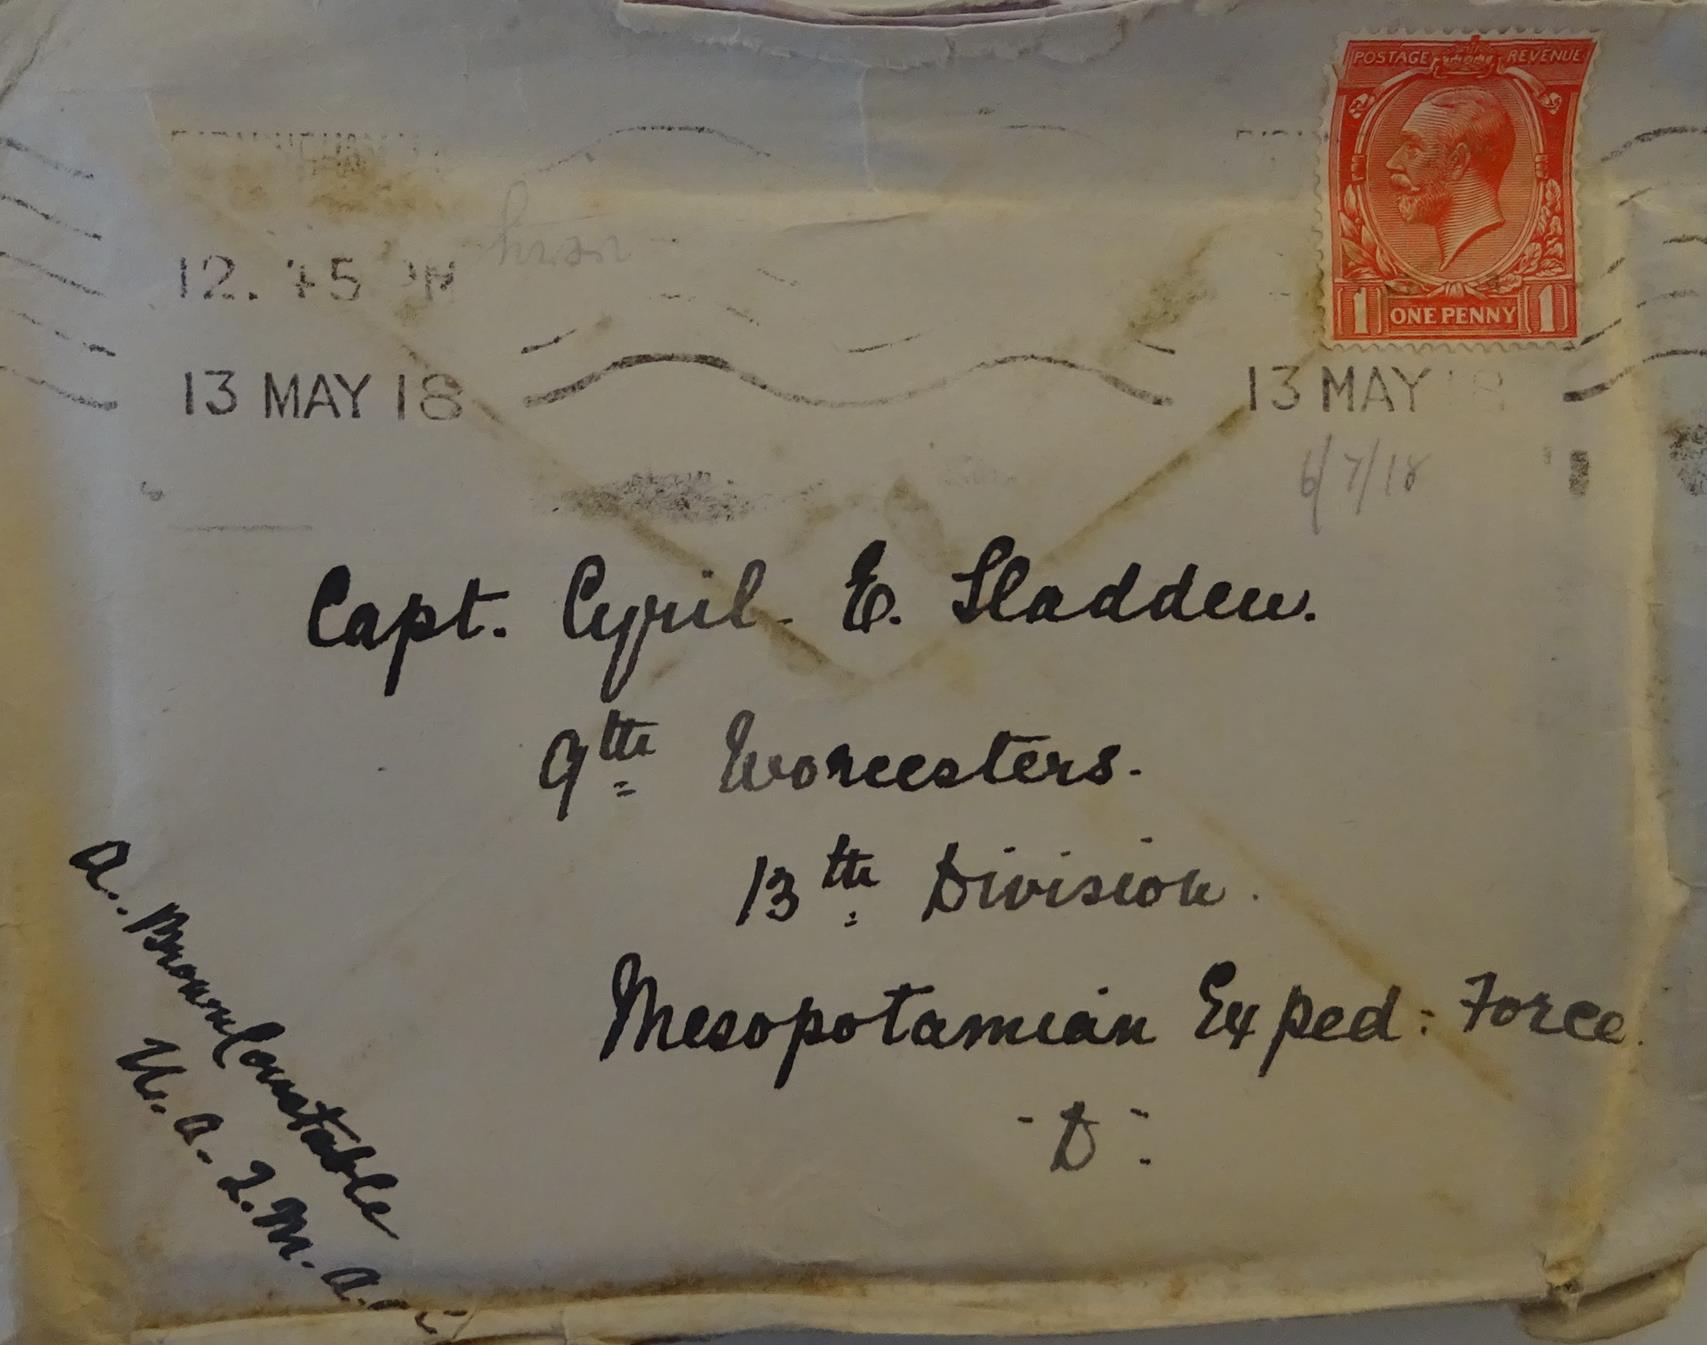 POSTAGE REVENUE
1 ONE PENNY 1
12.45 PM
13 MAY 18
13 MAY 18
6/7/18
Capt. Cyril. E. Sladden.
9th Worcesters.
13th Division.
Mesopotamian Exped: Force.
- D -
A. Brown Constable